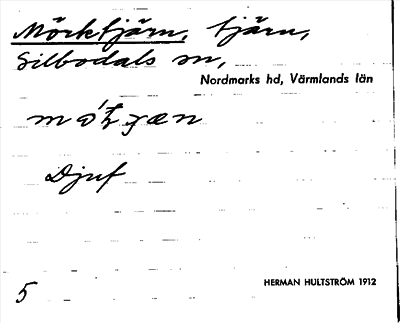 Mörktjärn, tjärn,
Silbodals sn,
Nordmarks hd, Värmlands län
Djuf
HERMAN HULTSTRÖM 1912
5